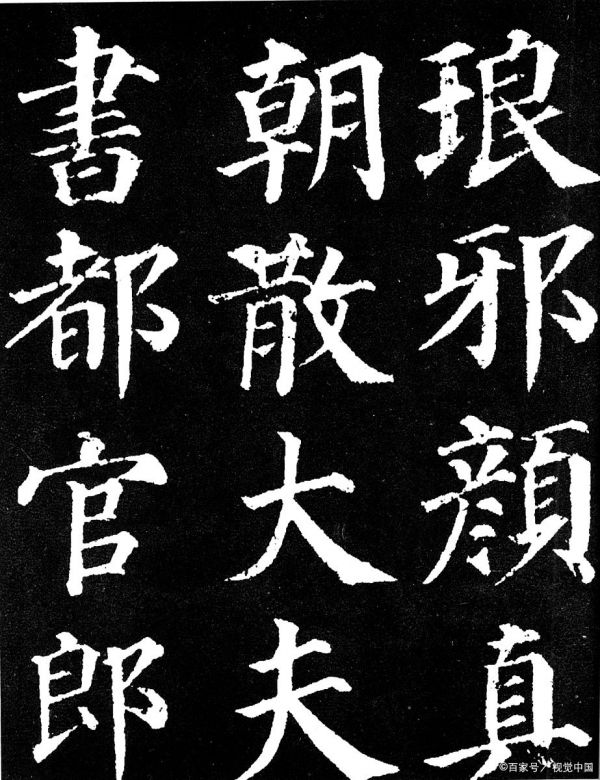 琅邪顏真
朝散大夫
書都官郎
©百家号/视觉中国